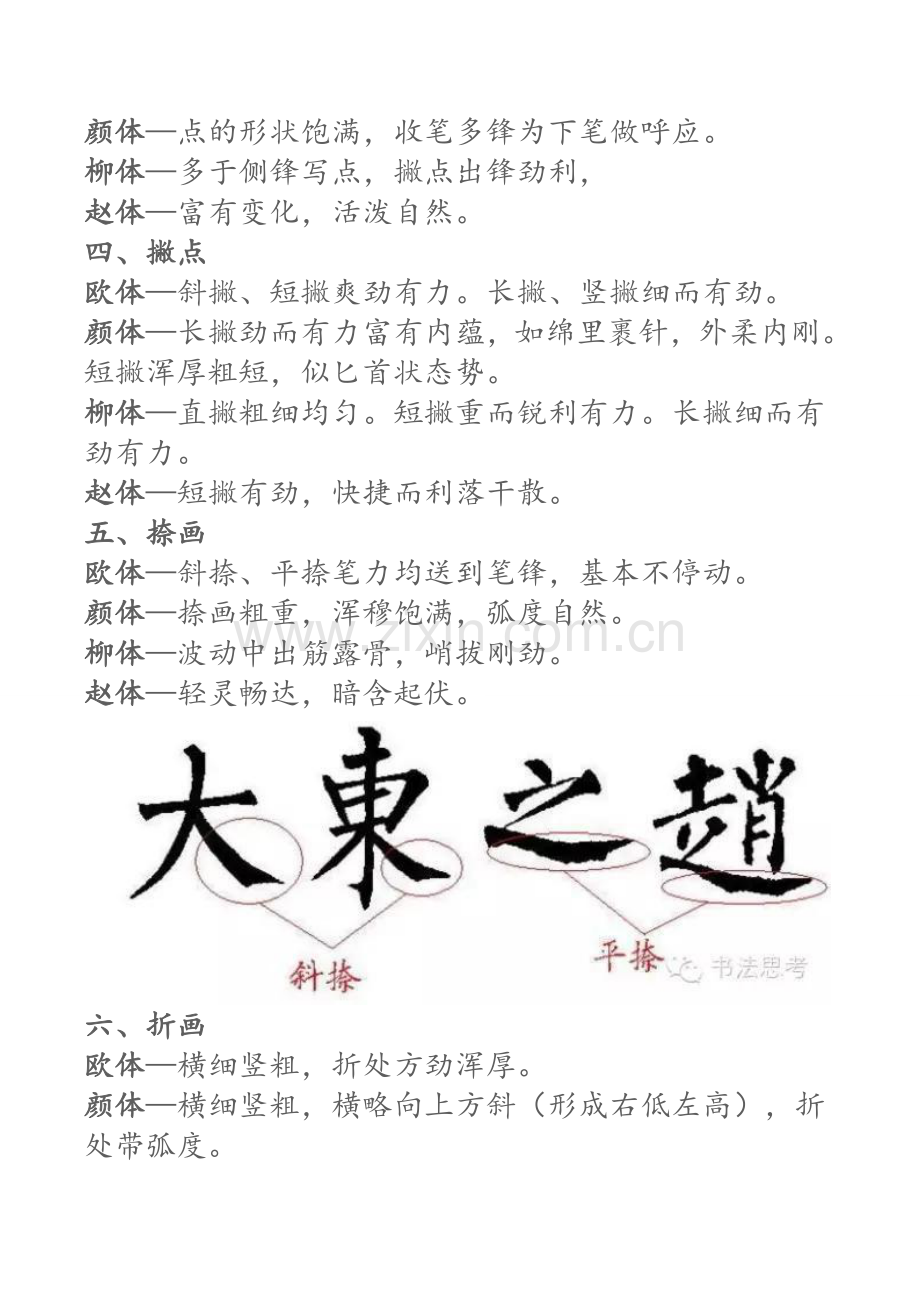 颜体—点的形状饱满，收笔多锋为下笔做呼应。
柳体—多于侧锋写点，撇点出锋劲利，
赵体—富有变化，活泼自然。
四、撇点
欧体—斜撇、短撇爽劲有力。长撇、竖撇细而有劲。
颜体—长撇劲而有力富有内蕴，如绵里裹针，外柔内刚。
短撇浑厚粗短，似匕首状态势。
柳体—直撇粗细均匀。短撇重而锐利有力。长撇细而有
劲有力。
赵体—短撇有劲，快捷而利落干散。
五、捺画
欧体—斜捺、平捺笔力均送到笔锋，基本不停动。
颜体—捺画粗重，浑穆饱满，弧度自然。
www.zixin.com.cn
柳体—波动中出筋露骨，峭拔刚劲。
赵体—轻灵畅达，暗含起伏。
大東之趙
斜捺
平捺
书法思考
六、折画
欧体—横细竖粗，折处方劲浑厚。
颜体—横细竖粗，横略向上方斜（形成右低左高），折
处带弧度。